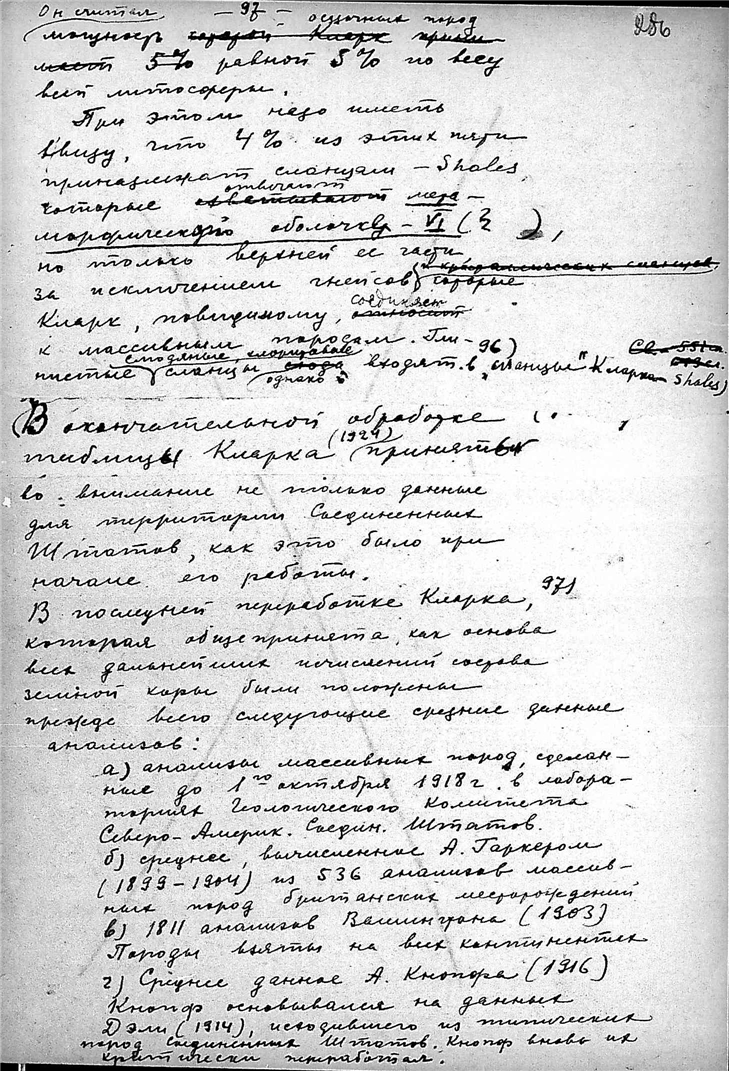 Он считал
— 97 —
286
осадочных пород
мощность которой Кларк прини-
мает 5% равной 5% по весу
всей литосферы.
При этом надо иметь
ввиду, что 4% из этих пяти
принадлежат сланцам — Shales,
отвечают
которые охватывают мета-
морфической оболочке — VI ( ),
но только верхней ее части
за исключением гнейсов и кристаллических сланцев, которые
соединяет
Кларк, повидимому, относит
к массивным породам. Гли- 96)
слюдяные, хлоритовые
нистые сланцы сюда входят в „сланцы" Кларка Shales)
однако
В окончательной обработке
таблицы Кларка (1924) приняты
во внимание не только данные
для территории Соединенных
Штатов, как это было при
начале его работы.
В последней переработке Кларка, 97)
которая общепринята, как основа
всех дальнейших исчислений состава
земной коры были положены
прежде всего следующие средние данные
анализов:
а) анализы массивных пород, сделан-
ные до 1го октября 1918 г. в лабора-
ториях Геологического Комитета
Северо-Америк. Соедин. Штатов.
б) среднее, вычисленное А. Гаркером
(1899-1904) из 536 анализов массив-
ных пород британских месторождений
в) 1811 анализов Вашингтона (1903)
Породы взяты на всех континентах
г) Среднее данное А. Кнопфа (1916)
Кнопф основывался на данных
Дэли (1914), исходившего из типических
пород Соединенных Штатов. Кнопф вновь их
критически переработал.